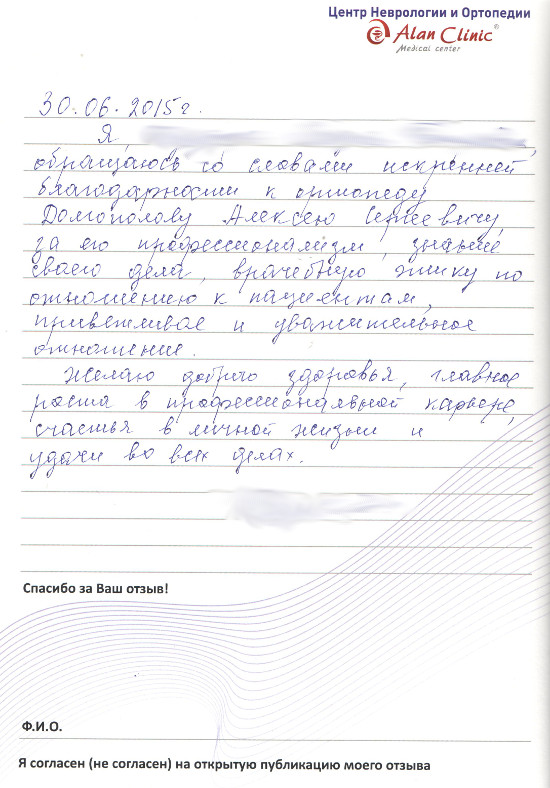 Центр Неврологии и Ортопедии
Alan Clinic®
Medical center
30.06.2015г.
Я
обращаюсь со словами искренней
благодарности к ортопеду
Долгополову Алексею Сергеевичу,
за его профессионализм, знание
своего дела, врачебную этику по
отношению к пациентам,
приветливое и уважительное
отношение.
Желаю доброго здоровья, главное
роста в профессиональной карьере,
счастья в личной жизни и
удачи во всех делах.
Спасибо за Ваш отзыв!
Ф.И.О.
Я согласен (не согласен) на открытую публикацию моего отзыва